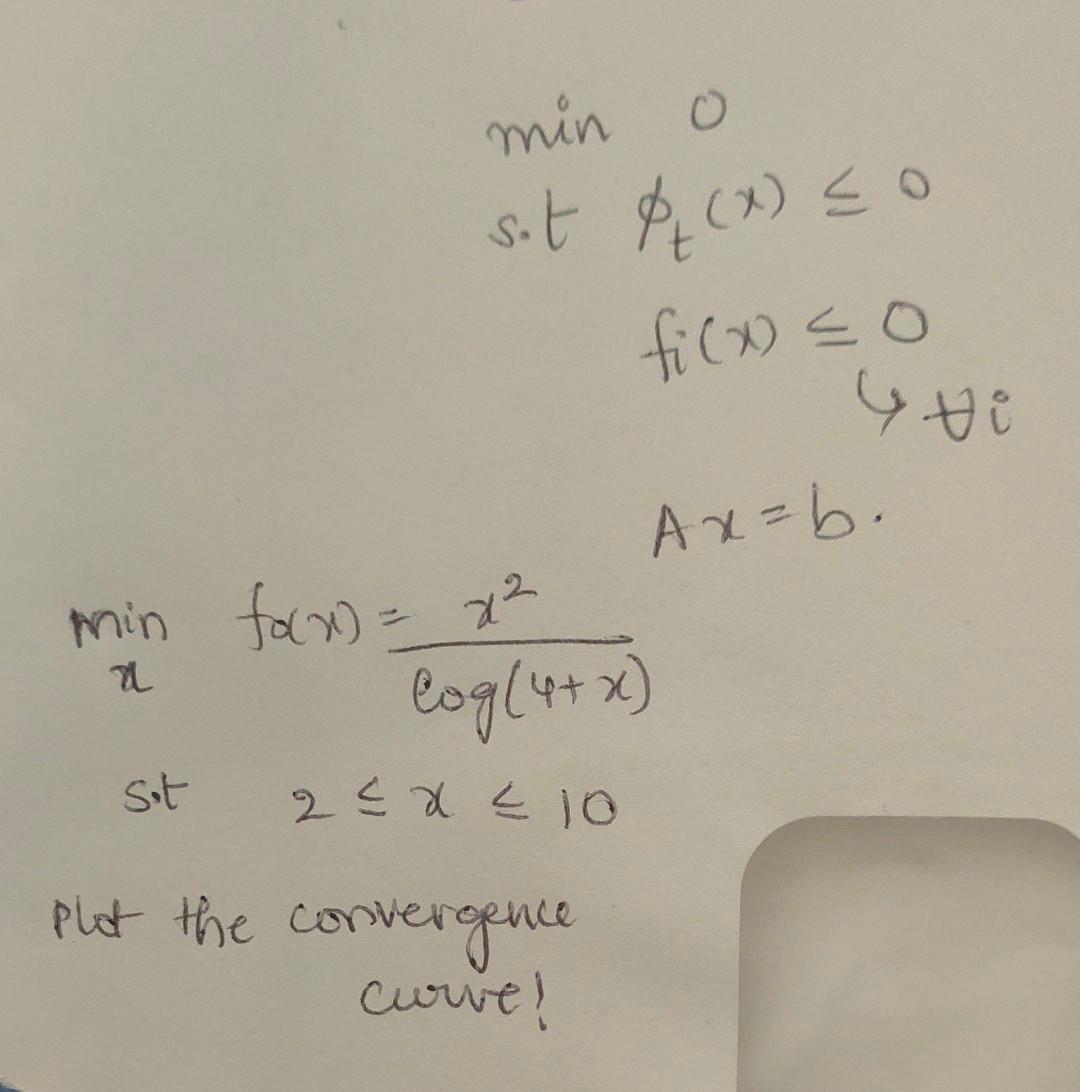 min 0
s.t ϕₜ(x) ≤ 0
fi(x) ≤ 0
↳ ∀i
Ax = b.
min f₀(x) = x²
x log(4+x)
s.t 2 ≤ x ≤ 10
Plot the convergence
curve!